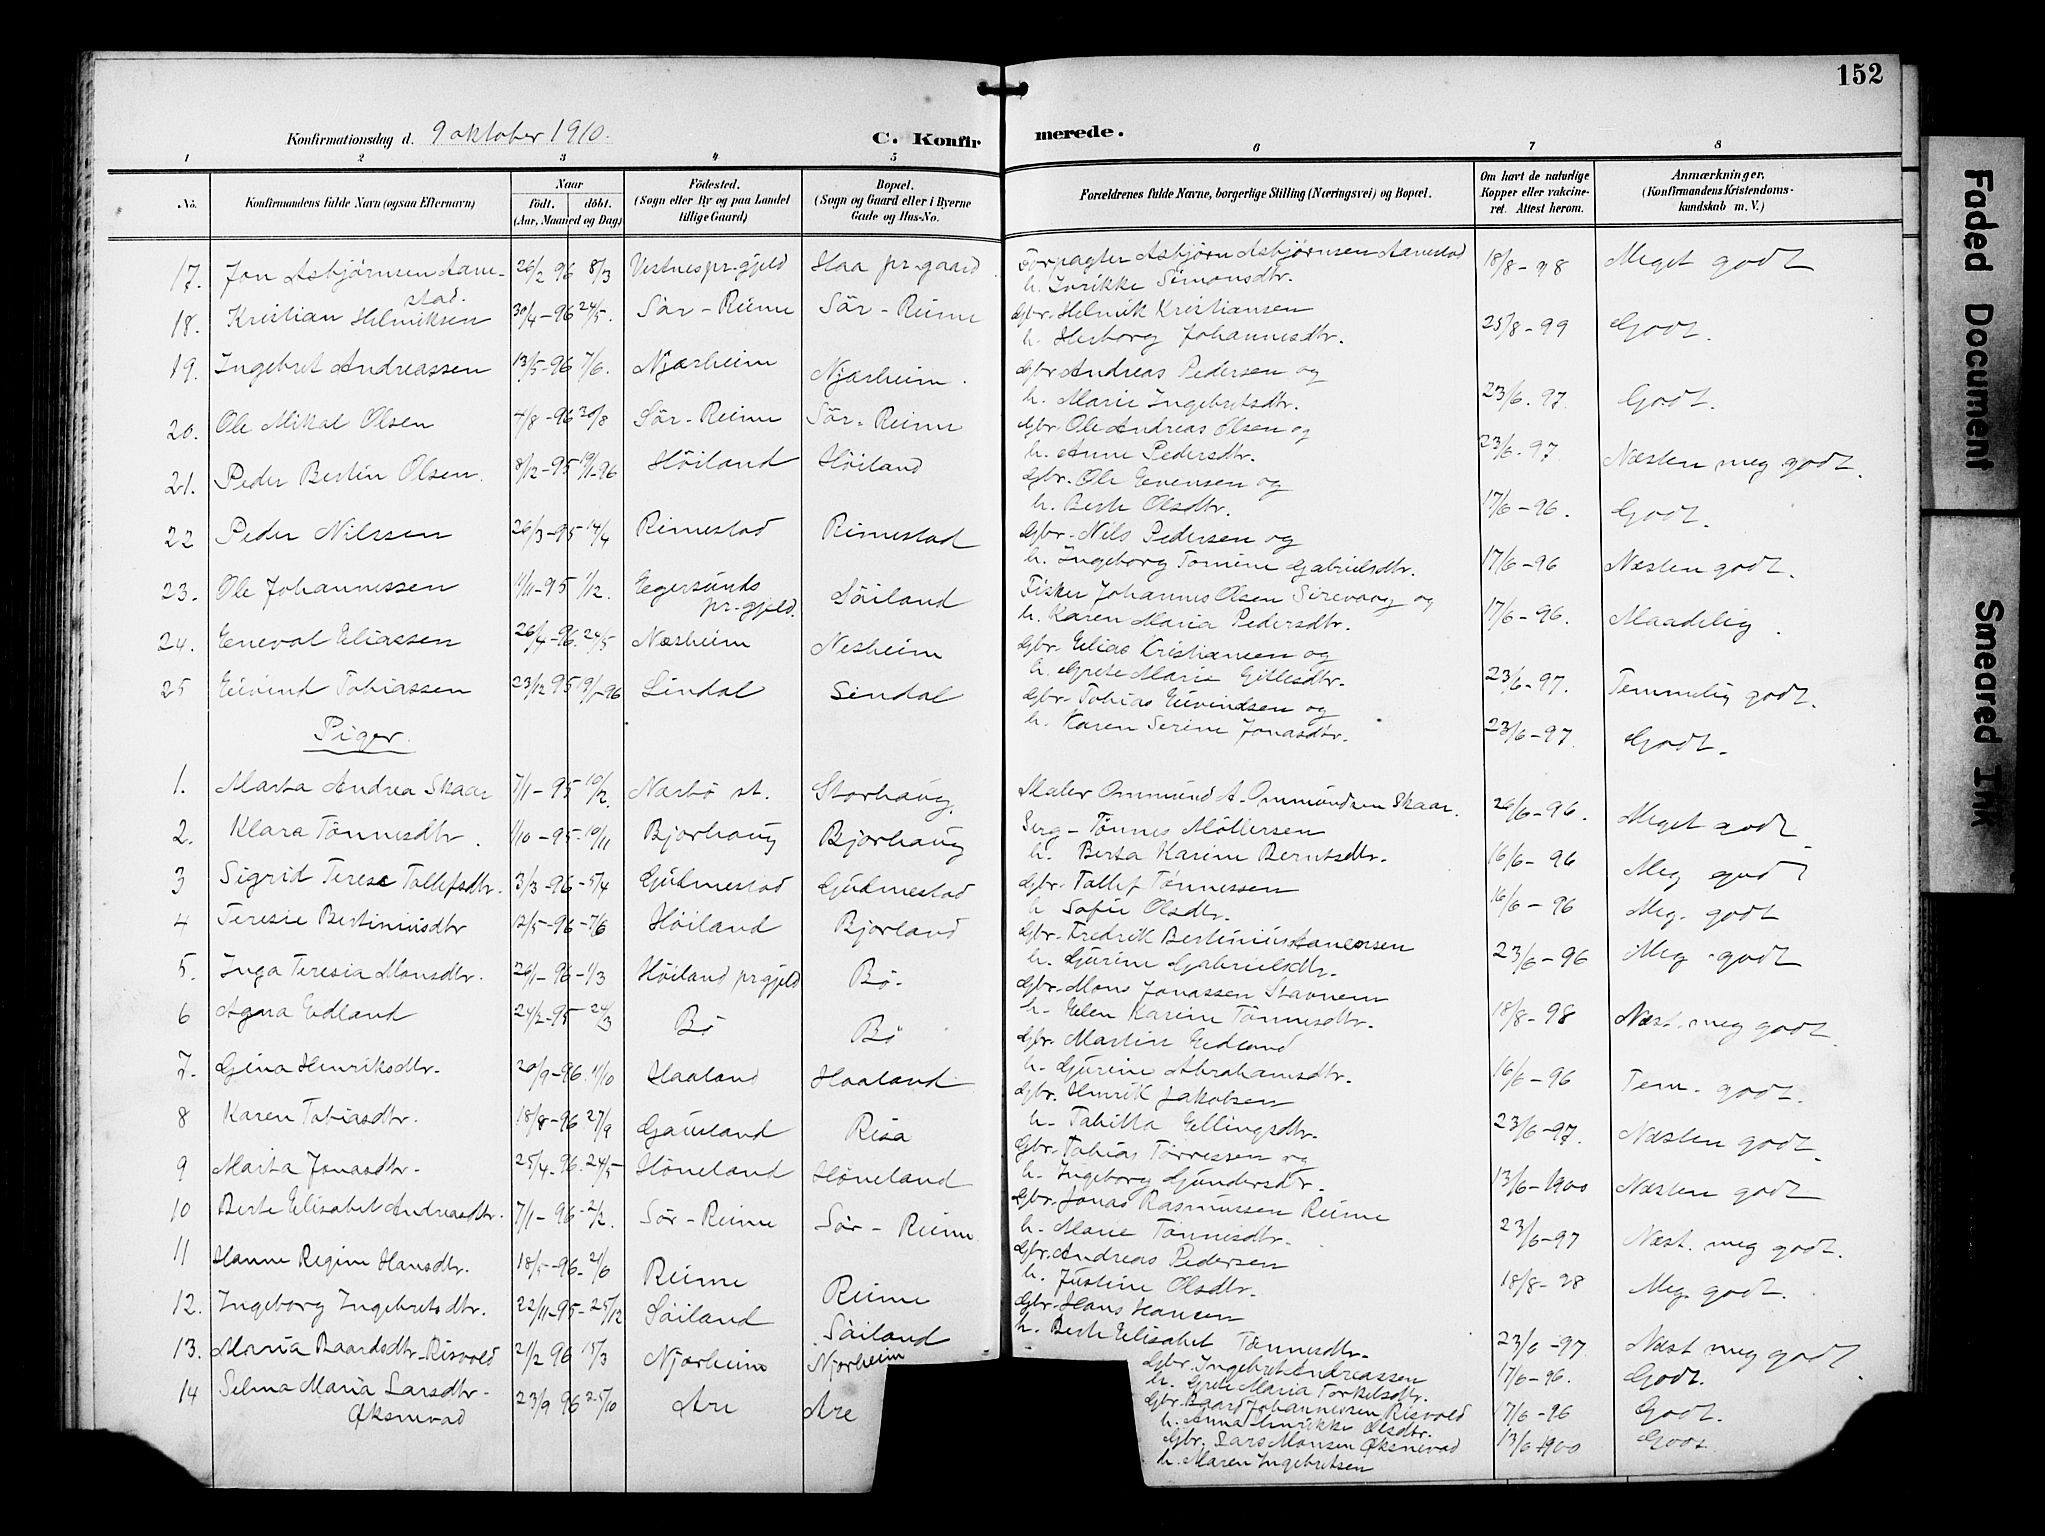 152
Konfirmationsdag d. 9 oktober 1910. C. Konfir merede.
1 2 3 4 5 6 7 8
No. Konfirmandens fulde Navn (ogsaa Efternavn) Naar født. døbt. (Aar, Maaned og Dag) Fødested. (Sogn eller By og paa Landet tillige Gaard) Bopæl. (Sogn og Gaard eller i Byerne Gade og Hus-No. Forældrenes fulde Navne, borgerlige Stilling (Næringsvei) og Bopæl. Om havt de naturlige Kopper eller vakcineret. Attest herom. Anmærkninger. (Konfirmandens Kristendomskundskab m. V.)
17. Jon Asbjørnsen Aanestad. 26/2 96 8/3 Vestnes pr.gjeld Haa pr.gaard Forpagter Asbjørn Asbjørnsen Aanestad 18/8-98 Meget godt
h. Simonsdtr.
18. Kristian Helmiksen 30/4-96 24/5. Sör-Reime Sör-Reime Gbr. Helmik Kristiansen 25/8-99 Godt.
h. Herborg Johannesdtr.
19. Ingebret Andreassen 13/5-96 7/6. Njærheim Njærheim. Gbr Andreas Pedersen og 23/6.97. Godt.
h. Marie Ingebretsdtr.
20. Ole Mikal Olsen 4/8-96 30/8 Sör-Reime Sör-Reime Gbr. Ole Andreas Olsen og 23/6.97. Næsten meg godt.
h. Anne Pedersdtr.
21. Peder Bertin Olsen. 8/12-95 19/1-96 Höiland Höiland Gbr. Ole Evensen og 17/6-96. Godt.
h. Berte Olsdtr.
22 Peder Nilssen 26/3-95 14/4 Rimestad Rimestad Gbr. Nils Pedersen og 17/6-96 Næsten godt.
h. Ingeborg Tomine Gabrielsdtr.
23. Ole Johannessen 11/11-95 1/12. Egersunds pr.gjeld. Söiland Fisker Johannes Olsen Sirevaag og 17/6-96. Maadelig.
h. Karen Maria Pedersdtr.
24. Eneval Eliassen 26/4-96. 24/5 Næsheim Nesheim Gbr. Elias Kristiansen og 23/6-97. Temmelig godt.
h. Grete Marie Gitlesdtr.
25 Eivind Tobiassen 23/12 95 19/1-96 Lindal Lindal Gbr. Tobias Eivindsen og 23/6-97. Godt.
h. Karen Serine Jonasdtr.
Piger.
1. Marta Andrea Skaar 7/1-95 10/2. Nærbö st. Storhaug. Maler Ommund A. Ommundsen Skaar. 26/6-96. Meget godt
2. Klara Tønnesdtr. 1/10-95-10/11 Bjorhaug Bjorhaug Serg- Tønnes Möllersen 16/6-96 Meg godt
h. Berta Karine Berntsdtr.
3 Sigrid Terese Tollefsdtr. 3/3-96-5/4 Gudmestad Gudmestad Gbr. Tollef Tønnessen 16/6-96 Meg. godt
h. Sofie Olsdtr.
4 Teresie Bertiniusdtr 12/5-96-7/6 Höiland Bjorland Gbr. Fredrik Bertinius Aanensen 23/6-96 Meg. godt
h. Gurine Gabrielsdtr.
5. Inga Teresia Monsdtr. 26/1-96-1/3 Höiland pr gjeld Bö. Gbr. Mons Jonassen Stavnem 18/8-98 Næst. meg godt.
h. Elen Karine Tønnesdtr.
6 Agna Edland 24/2-95 24/3 Bö Bö Gbr. Martin Edland 16/6-96 Tem. godt.
h. Gurine Abrahamsdtr.
7. Gina Henriksdtr. 20/9-96. 11/10 Haaland Haaland Gbr. Henrik Jakobsen 23/6-97. Næsten godt.
h. Tabitta Ellingsdtr.
8 Karen Tobiasdtr. 18/8-96 27/9 Gausland Risa Gbr. Tobias Torressen og 13/6-1900 Næsten godt
h. Ingeborg Gundersdtr.
9 Marta Jonasdtr. 25/4-96. 24/5 Höneland Höneland Gbr. Jonas Rasmussen Reime 23/6-97 Næst. meg godt.
h. Marie Tönnesdtr.
10 Berte Elisabet Andreasdtr. 7/1-96-2/2. Sør-Reime Sör-Reime Gbr. Andreas Pedersen 18/8-98 Meg. godt.
h. Justine Olsdtr.
11 Hanne Regine Hansdtr. 18/5-96-21/6 Reime Reime Gbr. Hans Hansen 23/6-97 Næst meg godt
h. Berte Elisabet Tønnesdtr.
12. Ingeborg Ingebretsdtr. 22/11-95-25/12 Söiland Söiland Gbr. Ingebret Andreassen 17/6-96. Godt.
h. Grete Maria Torkelsdtr.
13. Maria Baardsdtr. Risvold 21/2 96 15/3 Njærheim Njærheim Gbr. Baard Johannessen Risvold 17/6-96 Godt.
h. Anna Henrikke Olsdtr.
14 Selma Maria Larsdtr. Øksnevad 23/9 96 25/10 Are Are Gbr. Lars Monsen Øksnevad 13/6 1900 Godt.
h. Maren Ingebretsen
Faded Document
Smeared Ink